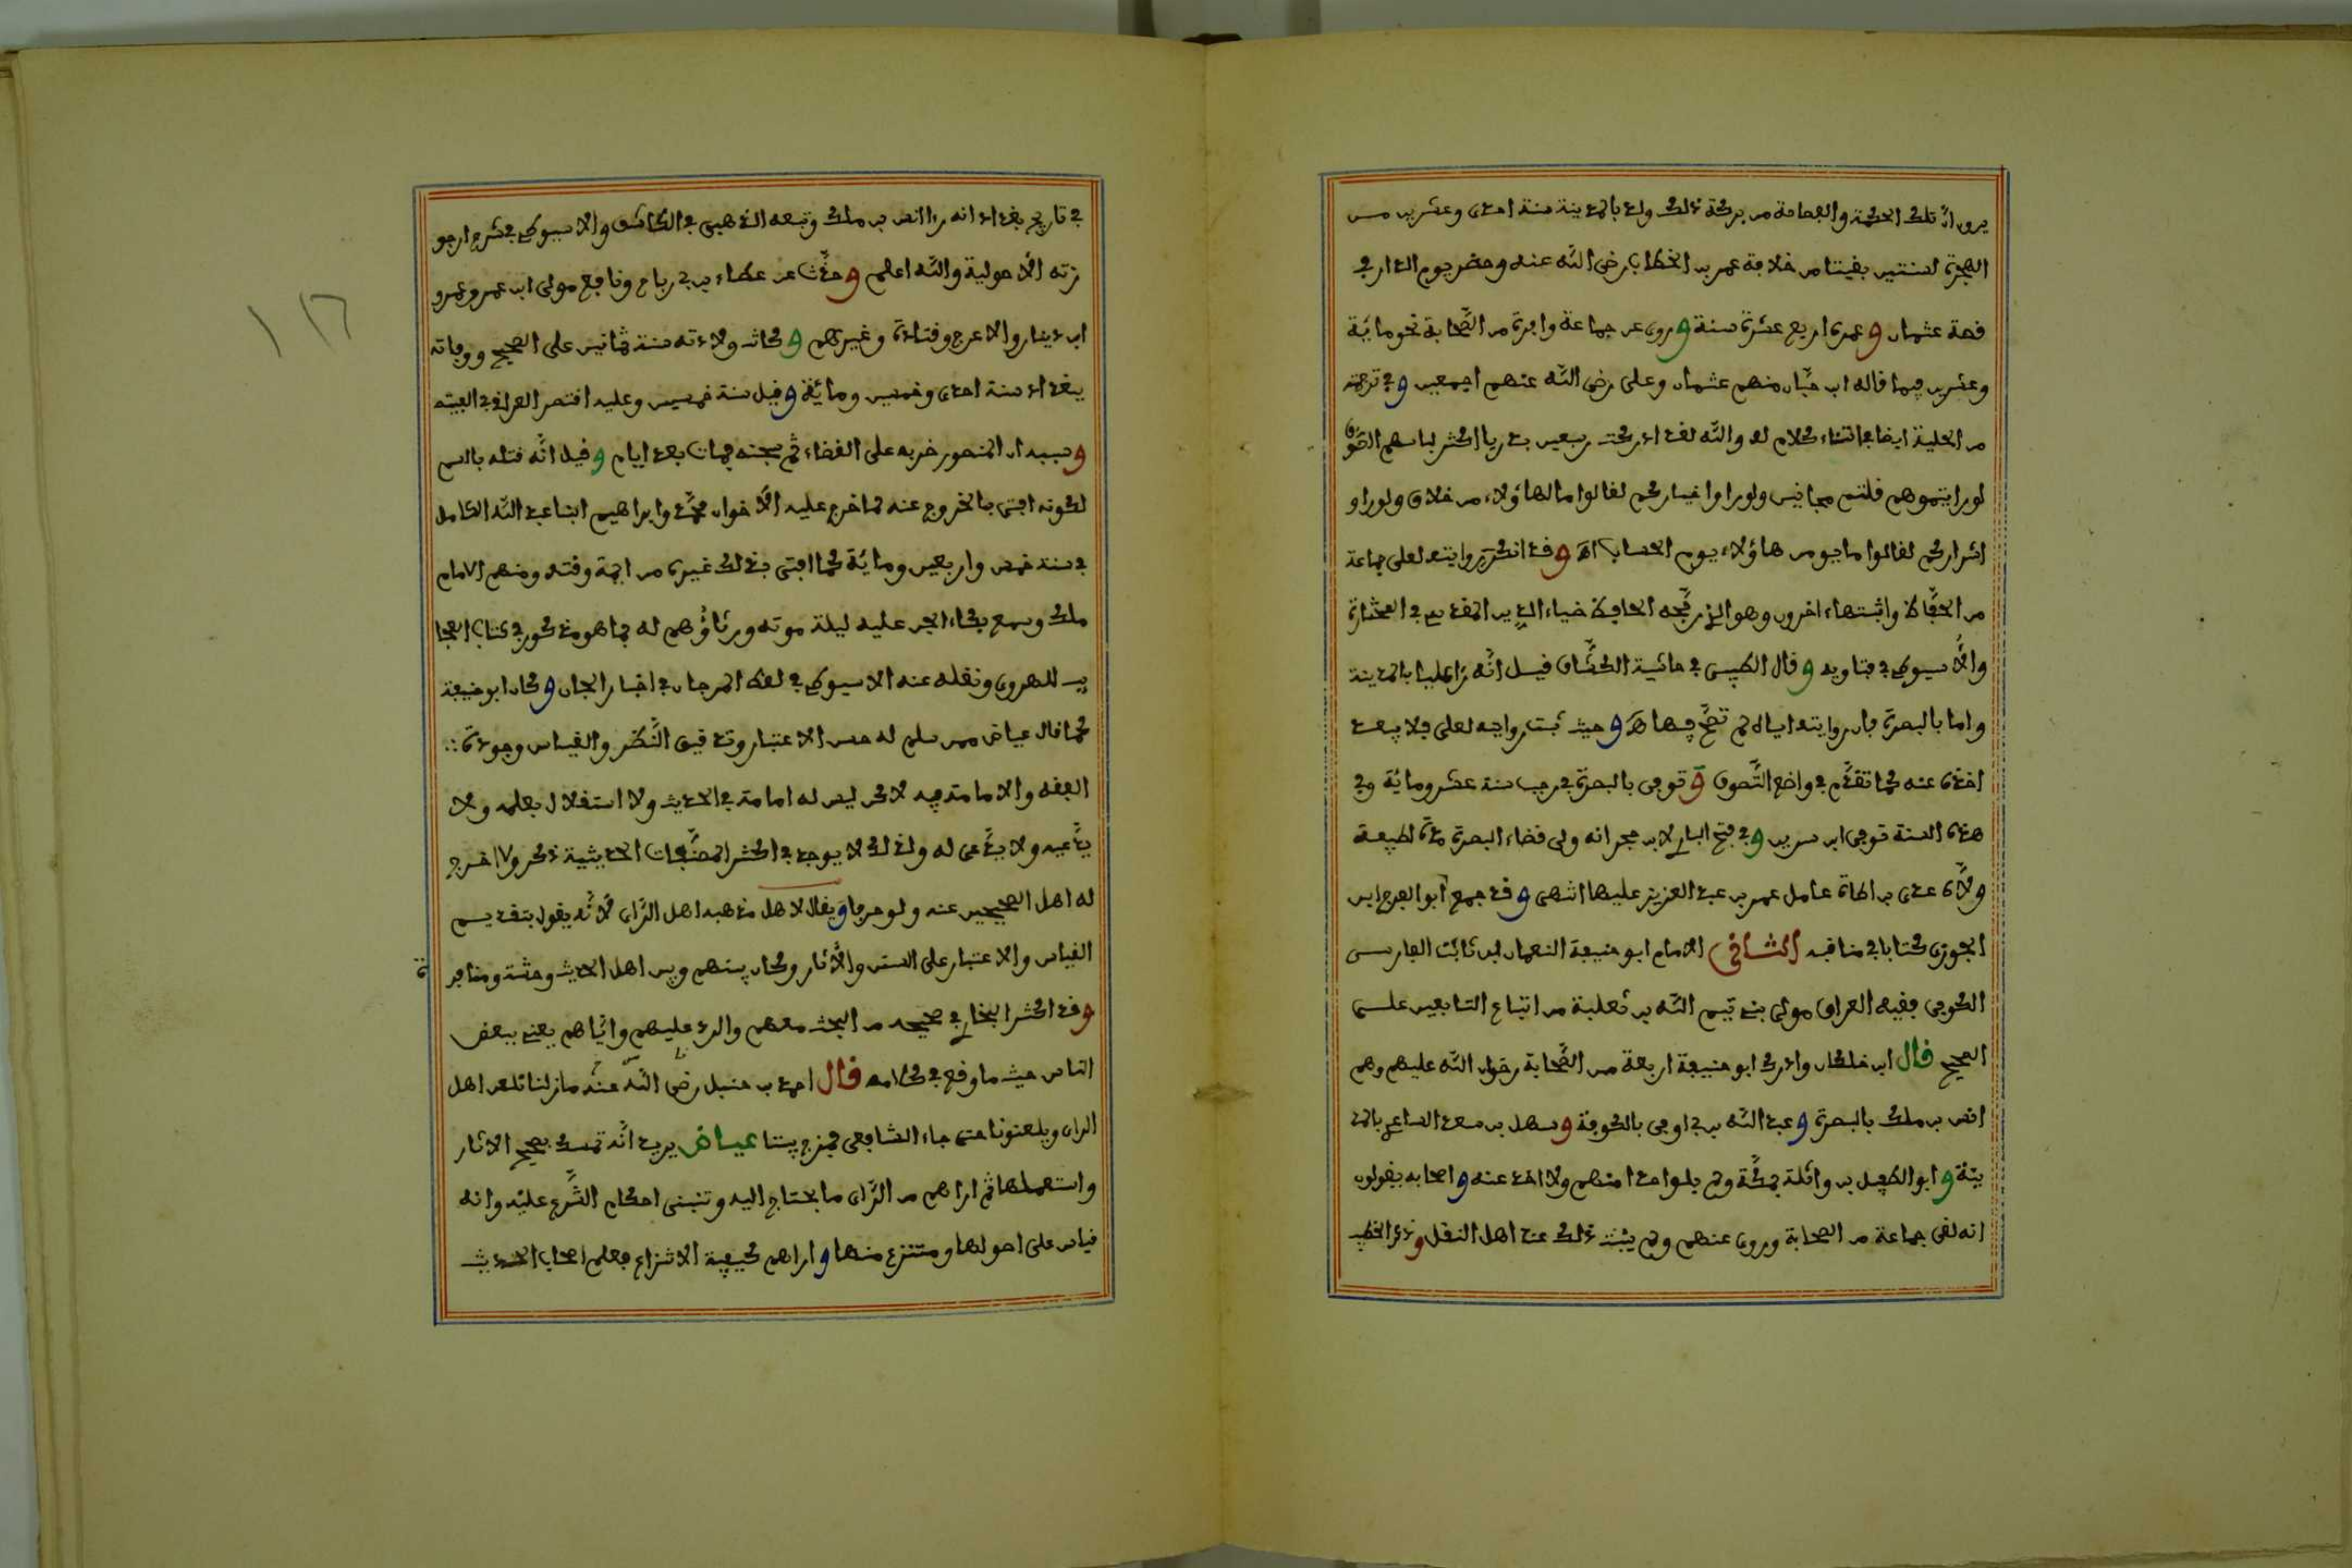 يرون انَّ تلك الحكمة والفصاحة من بركة ذلك ولد بالمدينة سنة احدى وعشرين من
الهجرة لسنتين بقيتا من خلافة عمر بن الخطاب رضي اللَّه عنه وحضر يوم الدار في
قصة عثمان و عمره اربع عشرة سنة و روى عن جماعة وافرة من الصَّحابة نحو مائة
وعشرين فيما قاله ابن حبَّان منهم عثمان وعلي رضي اللَّه عنهم اجمعين و في ترجمته
من الحلية ايضا في اثناء كلام له واللَّه لقد ادركت سبعين بدريا اكثر لباسهم الصّوف
لو رايتموهم قلتم مجانين ولو راوا خياركم لقالوا ما لهاؤلاء من خلاق ولو راو
اشراركم لقالوا ما يومن هاؤلاء بيوم الحساب اهـ و قد انكرت روايته لعلي جماعة
من الحفَّاظ واثبتهاء اخرون وهو الذي رجَّحه الحافظ ضياء الدين المقدسي في المختارة
والاَّسيوطي في فتاويه و قال الطيبي في حاشية الكشَّاف قيل انَّه رءا عليا بالمدينة
واما بالبصرة فان روايته اياه لم تصحَّ فيها اهـ و حيث ثبت روايته لعلي فلا يبعد
اخذه عنه كما تقدَّم في واضع التَّصوف و توفي بالبصرة في رجب سنة عشر ومائة وفي
هذه السنة توفي ابن سرين و في فتح الباري لابن حجر انه ولي قضاء البصرة مدة لطيفة
ولَّاه عدي بن ارطاة عامل عمر بن عبد العزيز عليها انتهى و قد جمع ابو الفرج ابن
الجوزي كتابا في مناقبه الثاني الامام ابو حنيفة النعمان ابن ثابت الفارسي
الكوفي فقيه العراق مولى بني تيم اللَّه بن ثعلبة من اتباع التابعين على
الصحيح قال ابن خلكان وادرك ابو حنيفة اربعة من الصَّحابة رضوان اللَّه عليهم وهم
انس بن ملك بالبصرة و عبد اللَّه بن ابي اوفى بالكوفة و سهل بن سعد الساعدي بالمد
ينة و ابو الطفيل بن واثلة بمكَّة ولم يلق احدا منهم ولا اخذ عنه و اصحابه يقولون
انه لقي جماعة من الصحابة وروى عنهم ولم يثبت ذلك عند اهل النقل و ذكر الخطيب
في تاريخ بغداد انه رءا انس بن ملك وتبعه الذهبي في الكاشف والاسيوطي في شرح ارجو
زته الاَّصولية واللَّه اعلم و حدَّث عن عطاء بن ابي رباح ونافع مولى ابن عمر وعمرو
ابن دينار والاعرج وقتادة وغيرهم و كانت ولادته سنة ثمانين على الصحيح ووفاته
ببغداد سنة احدى وخمسين ومائة و قيل سنة خمسين وعليه اقتصر العراقي في الفيته
و سببه ان المنصور ضربه على القضاء ثم سجنه فمات بعد ايام و قيل انَّه قتله بالسم
لكونه افتى بالخروج عنه لما خرج عليه الاَّخوان محمَّد وابراهيم ابنا عبد اللَّه الكامل
في سنة خمس واربعين ومائة كما افتى بذلك غيره من ايمة وقته ومنهم الامام
ملك وسمع بكاء الجن عليه ليلة موته ورثاؤهم له بما هو مذكور في كتاب العجا
يب للهروي ونقله عنه الاسيوطي في لقط المرجان في اخبار الجان و كان ابو حنيفة
كما قال عياض ممن سلم له حسن الاعتبار وتدقيق النَّظر والقياس وجودة
الفقه والامامة فيه لاكن ليس له امامة في الحديث ولا استقلال بعلمه ولا
يدَّعيه ولا يدَّعى له ولذلك لا يوجد في اكثر المصنَّفات الحديثية ذكر ولا اخرج
له اهل الصحيحين عنه ولو حرفا و يقال لاهل مذهبه اهل الرَّاي لاَنَّه يقول بتقديم
القياس والاعتبار على السنن والاَّثار وكان بينهم وبين اهل الحديث وحشة ومنافرة
و قد اكثر البخاري في صحيحه من البحث معهم والرد عليهم واياهم يعني ببعض
الناس حيث ما وقع في كلامه قال احمد بن حنبل رضي اللَّه عنه ما زلنا نلعن اهل
الراي ويلعنوننا حتى جاء الشافعي فمزج بيننا عياض يريد انَّه تمسك بصحيح الاثار
واستعملها ثم اراهم من الرَّاي ما يحتاج اليه وتبنى احكام الشَّرع عليه وانه
قياس على اصولها ومنتزع منها و اراهم كيفية الانتزاع فعلم اصحاب الحديث